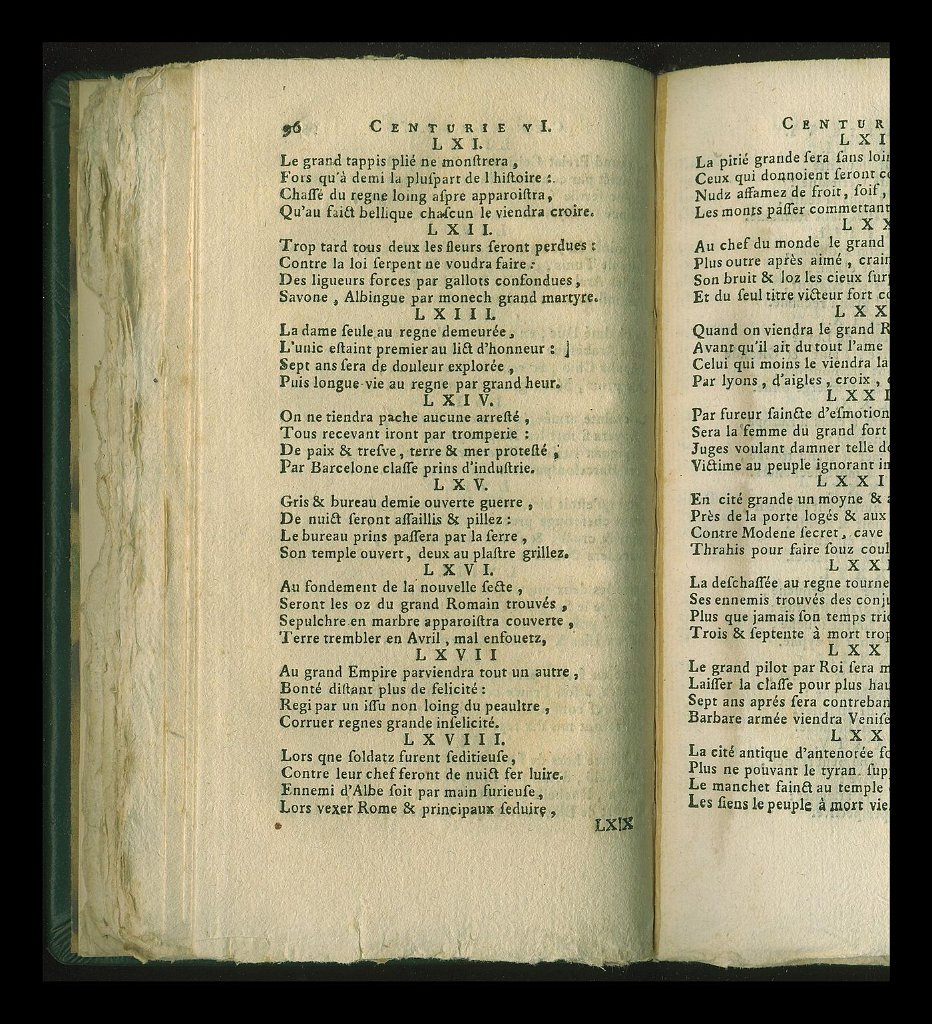 96 CENTURIE VI.
LXI.
Le grand tappis plié ne monſtrera,
Fors qu'à demi la pluſpart de l'hiſtoire :
Chaſſé du regne loing aſpre apparoiſtra,
Qu'au faict bellique chaſcun le viendra croire.
LXII.
Trop tard tous deux les fleurs ſeront perdues :
Contre la loi ſerpent ne voudra faire :
Des ligueurs forces par gallots confondues,
Savone, Albingue par monech grand martyre.
LXIII.
La dame ſeule au regne demeurée,
L'unic eſtaint premier au lict d'honneur :
Sept ans ſera de douleur explorée,
Puis longue vie au regne par grand heur.
LXIV.
On ne tiendra pache aucune arreſté,
Tous recevant iront par tromperie :
De paix & treſve, terre & mer proteſté ;
Par Barcelone claſſe prins d'induſtrie.
LXV.
Gris & bureau demie ouverte guerre,
De nuict ſeront aſſaillis & pillez :
Le bureau prins paſſera par la ſerre,
Son temple ouvert, deux au plaſtre grillez.
LXVI.
Au fondement de la nouvelle ſecte,
Seront les oz du grand Romain trouvés,
Sepulchre en marbre apparoiſtra couverte,
Terre trembler en Avril, mal enfouetz,
LXVII
Au grand Empire parviendra tout un autre,
Bonté diſtant plus de felicité :
Regi par un iſſu non loing du peaultre,
Corruer regnes grande infelicité.
LXVIII.
Lors qne ſoldatz furent ſeditieuſe,
Contre leur chef feront de nuict fer luire.
Ennemi d'Albe ſoit par main furieuſe,
Lors vexer Rome & principaux ſeduire,
LXIX
CENTUR
LXI
La pitié grande ſera ſans
Ceux qui donnoient ſeront
Nudz affamez de froit, ſoif,
Les monts paſſer commettant
LXX
Au chef du monde le grand
Plus outre après aimé,
Son bruit & loz les cieux
Et du ſeul titre victeur fort
LXX
Quand on viendra le grand
Avant qu'il ait du tout l'ame
Celui qui moins le viendra
Par lyons, d'aigles, croix,
LXXI
Par fureur ſaincte d'eſmotion
Sera la femme du grand fort
Juges voulant damner telle
Victime au peuple ignorant
LXXI
En cité grande un moyne &
Près de la porte logés & aux
Contre Modene ſecret, cave
Thrahis pour faire ſouz
LXXI
La deſchaſſée au regne
Ses ennemis trouvés des
Plus que jamais ſon temps
Trois & ſeptente à mort
LXX
Le grand pilot par Roi ſera
Laiſſer la claſſe pour plus
Sept ans aprés ſera
Barbare armée viendra
LXX
La cité antique d'antenorée
Plus ne pouvant le tyran
Le manchet fainct au temple
Les ſiens le peuple à mort